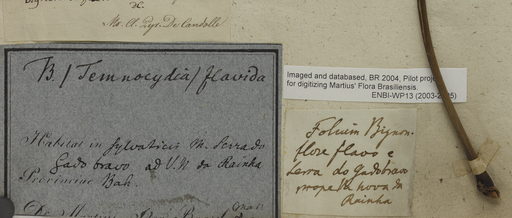 DC
Ms. A. Pyr. De Candolle
B. / Temnocydia / flavida
Habitat in sylvaticis M. Serra do
Gado bravo ad V.N. da Rainha
Provinciae Bah.
Imaged and databased, BR 2004, Pilot proje
for digitizing Martius' Flora Brasiliensis.
ENBI-WP13 (2003-2005)
Folium Bignon.
flore flavo e
Serra do Gadobravo
prope V nova da
Rainha